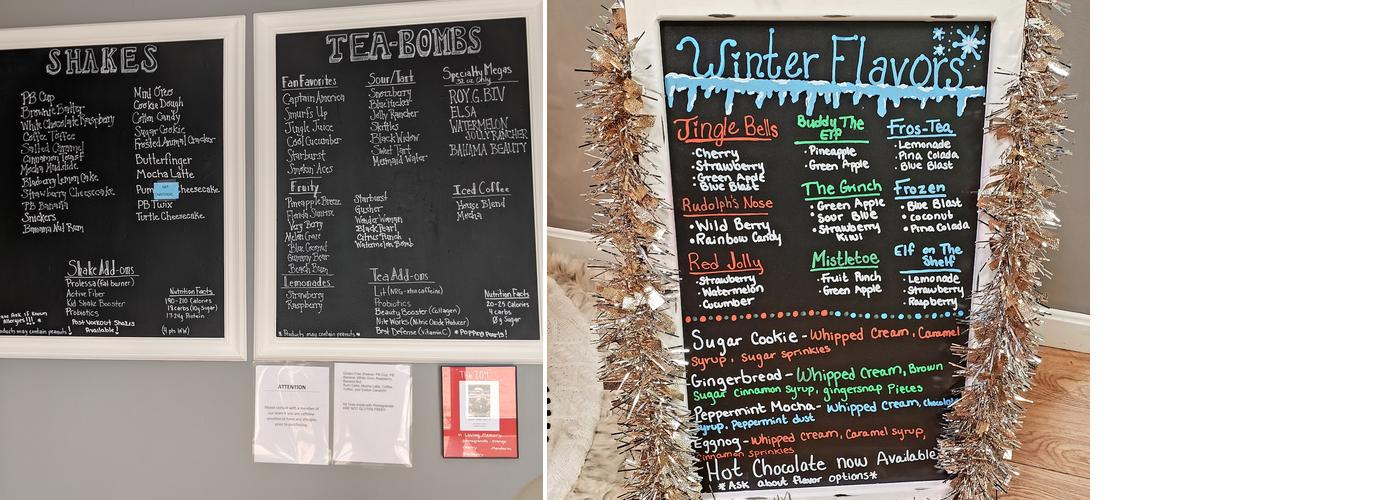 SHAKES
PB Cup
Brownie Batter
White Chocolate Raspberry
Coffee Toffee
Salted Caramel
Cinnamon Toast
Mocha Mudslide
Blueberry Lemon Cake
Strawberry Cheesecake
PB Banana
Snickers
Banana Nut Rum
Mint Oreo
Cookie Dough
Cotton Candy
Sugar Cookie
Frosted Animal Cracker
Butterfinger
Mocha Latte
Pum heesecake
PB Twix
Turtle Cheesecake
Shake Add-ons
Prolessa (fat burner)
Active Fiber
Kid Shake Booster
Probiotics
Post Workout Shakes
Available!
Nutrition Facts
190-210 Calories
17-24g Protein
(4 pts WW)
Allergies!!!
products may contain peanuts
TEA-BOMBS
Fan Favorites
Captain America
Smurf's Up
Jingle Juice
Cool Cucumber
Starburst
Smokin Aces
Fruity
Pineapple Breeze
Florida Sunrise
Very Berry
Melon Craze
Blue Coconut
Gummy Bear
Beach Bum
Lemonades
Strawberry
Raspberry
*Products may contain peanuts*
Sour/Tart
Snozzberry
Jolly Rancher
Skittles
Black Widow
Sweet Tart
Mermaid Water
Starburst
Gusher
Wonder Woman
Black Pearl
Citrus Punch
Watermelon Bomb
Tea Add-ons
Lit (NRG-xtra caffeine)
Probiotics
Beauty Booster (Collagen)
Nite Works (Nitric Oxide Producer)
Best Defense (Vitamin C)
*POPPING Pearls!
Specialty Megas
32 oz Only
ROY.G.BIV
ELSA
WATERMELON
JOLLY RANCHER
BAHAMA BEAUTY
Iced Coffee
House Blend
Mocha
Nutrition Facts
20-25 Calories
4 carbs
0g Sugar
ATTENTION
Please consult with a member of
our team if you are caffeine
sensitive or have any allergies
prior to purchasing.
ARE NOT GLUTEN FREE!!
The 204
In Loving Memory
Winter Flavors
Jingle Bells
•Cherry
•Strawberry
•Green Apple
•Blue Blast
Rudolph's Nose
•Wild Berry
•Rainbow Candy
Red Jolly
•Strawberry
•Watermelon
•Cucumber
Buddy The
Elf
•Pineapple
•Green Apple
The Grinch
•Green Apple
•Sour Blue
•Strawberry
Kiwi
Mistletoe
•Fruit Punch
•Green Apple
Fros-Tea
•Lemonade
•Pina Colada
•Blue Blast
Frozen
•Blue Blast
•coconut
•Pina Colada
Elf on The
Shelf
•Lemonade
•Strawberry
•Raspberry
Sugar Cookie - Whipped Cream, Caramel
Syrup, Sugar sprinkles
Gingerbread - Whipped Cream, Brown
Sugar cinnamon Syrup, gingersnap Pieces
Peppermint Mocha - Whipped Cream, chocolate
syrup, Peppermint dust
Eggnog - Whipped Cream, Caramel syrup,
cinnamon sprinkles
Hot Chocolate now Available
*Ask about flavor options*